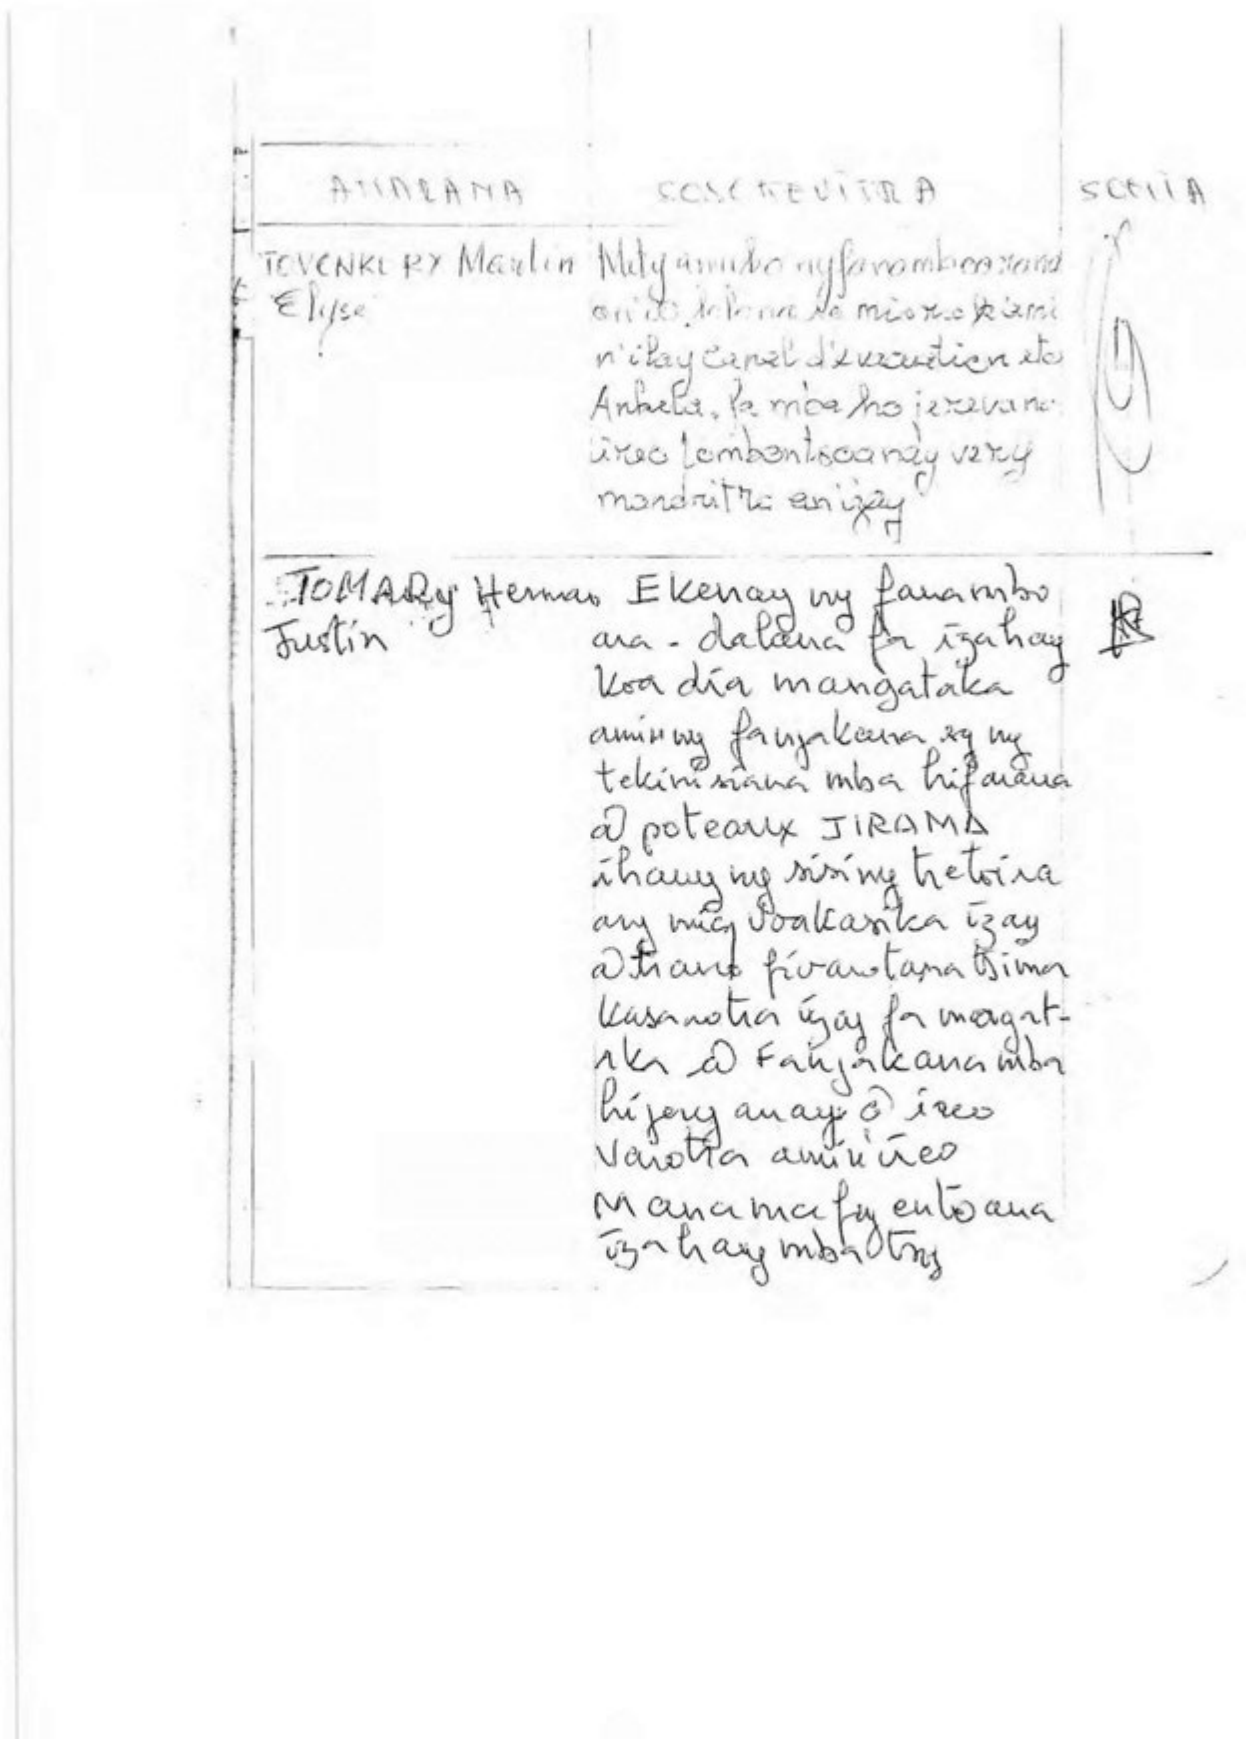 ANARANA SOSOKEVITRA SONIA
TOVENKERY Maulin Mety aminko ny fanamboarana
Elysé
n'ilay canal d'évacuation eto
Anketa, fa mba ho jerevana
ireo fombontsoanay very
mandritra an'izay
TOMARY Herman Ekenay ny fanambo
Justin ana - dalana fa izahay
koa dia mangataka
aminny fanjakana sy ny
tekinisiana mba hifarana
@ poteaux JIRAMA
ihany ny sisiny hetsira
ary miaj voakasika izay
@ trano fivarotana tsima
kasarotra izay fa magat-
aka @ Fanjakana mba
hijery anay @ ireo
varotra amin'ireo
Manamafy entoana
izahay mba tsy